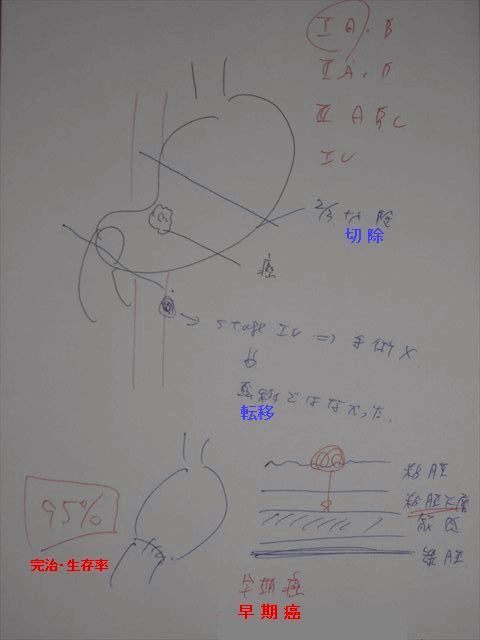 I A.B
II A.B
III A B C
IV
2/3 切除
切除
癌
Stage IV ⇒ 手術 X
転移ではなかった.
転移
粘膜
95%
粘膜下層
完治・生存率
早期癌
早期癌